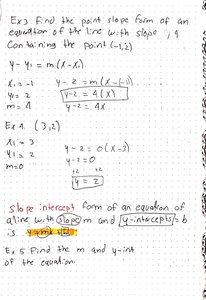 Ex 3 Find the point slope form of an
equation of the line with slope, 4
Containing the point (-1,2)
y - y₁ = m (x - x₁)
x₁ = -1 y - 2 = m (x - (-1))
y₁ = 2 y - 2 = 4 (x)
m = 4 y - 2 = 4x
Ex 4. (3,2)
x₁ = 3
y₁ = 2 y - 2 = 0 (x - 3)
m = 0 y - 2 = 0
+2 +2
y = 2
Slope intercept form of an equation of
a line with slope m and y-intercepts = b
is y = mx +
Ex 5 Find the m and y-int
of the equation